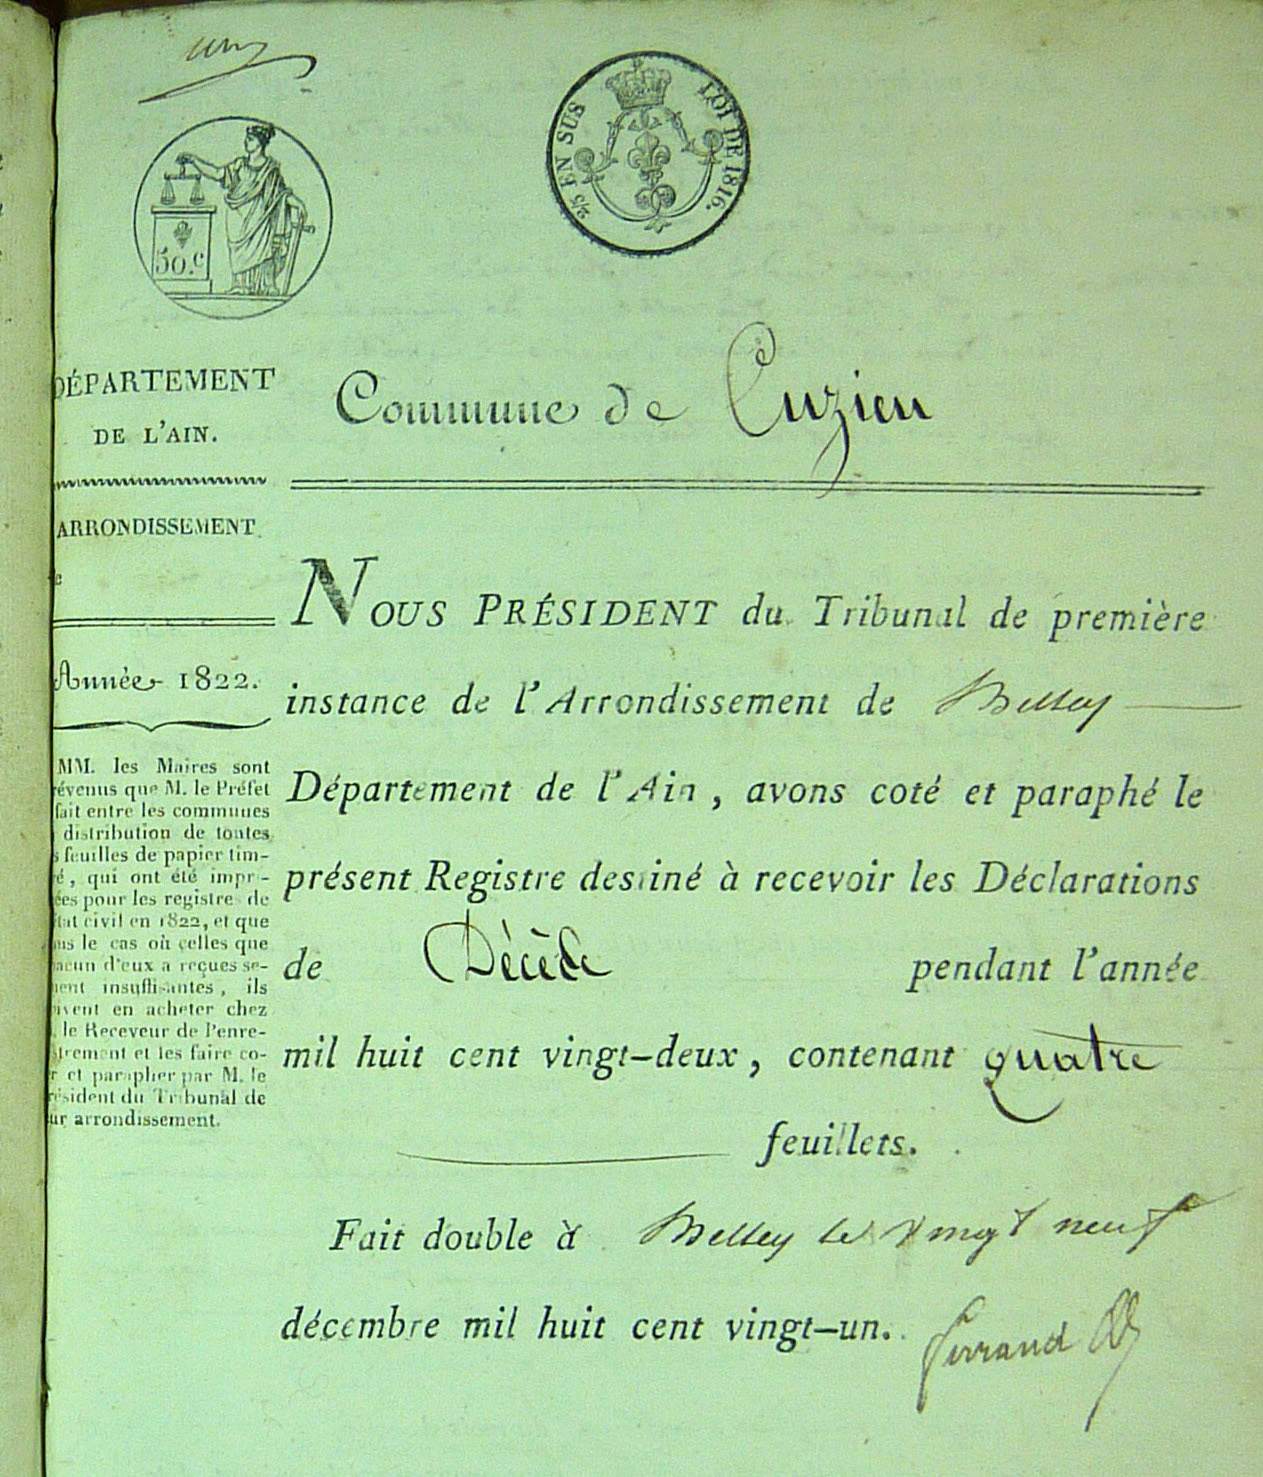 un
50.c
2/5 EN SUS
LOI DE 1816.
DÉPARTEMENT
DE L'AIN.
ARRONDISSEMENT
Année 1822.
MM. les Maires sont
évenus que M. le Préfet
fait entre les communes
distribution de toutes
s feuilles de papier tim-
é, qui ont été impri-
ées pour les registre de
tat civil en 1822, et que
ns le cas où celles que
acun d'eux a reçues se-
ient insuffisantes, ils
ivent en acheter chez
. le Receveur de l'enre-
strement et les faire co-
r et parapher par M. le
résident du Tribunal de
ur arrondissement.
Commune de Cuzieu
NOUS PRÉSIDENT du Tribunal de première
instance de l'Arrondissement de Belley
Département de l'Ain, avons coté et paraphé le
présent Registre destiné à recevoir les Déclarations
de Décès pendant l'année
mil huit cent vingt-deux, contenant quatre
feuillets.
Fait double à Belley le vingt neuf
décembre mil huit cent vingt-un.
Ferrand